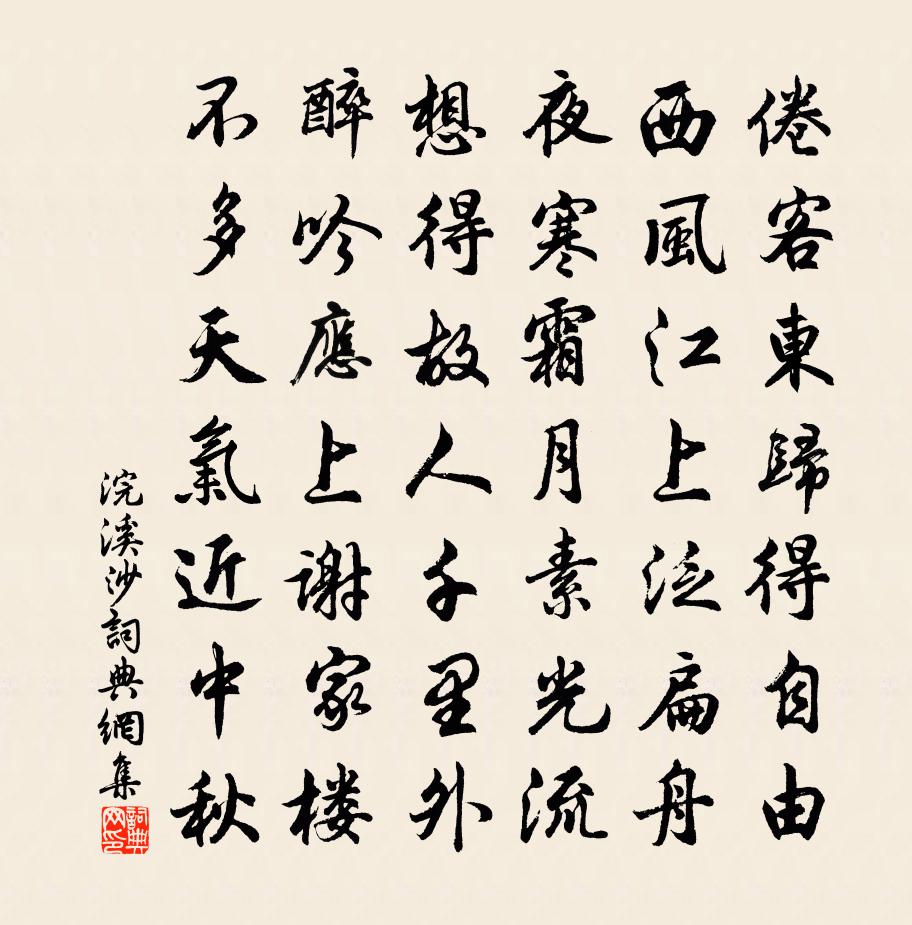 倦客東歸得自由
西風江上泛扁舟
夜寒霜月素光流
想得故人千里外
醉吟應上謝家楼
不多天氣近中秋
浣溪沙詞典網集
詞典网印